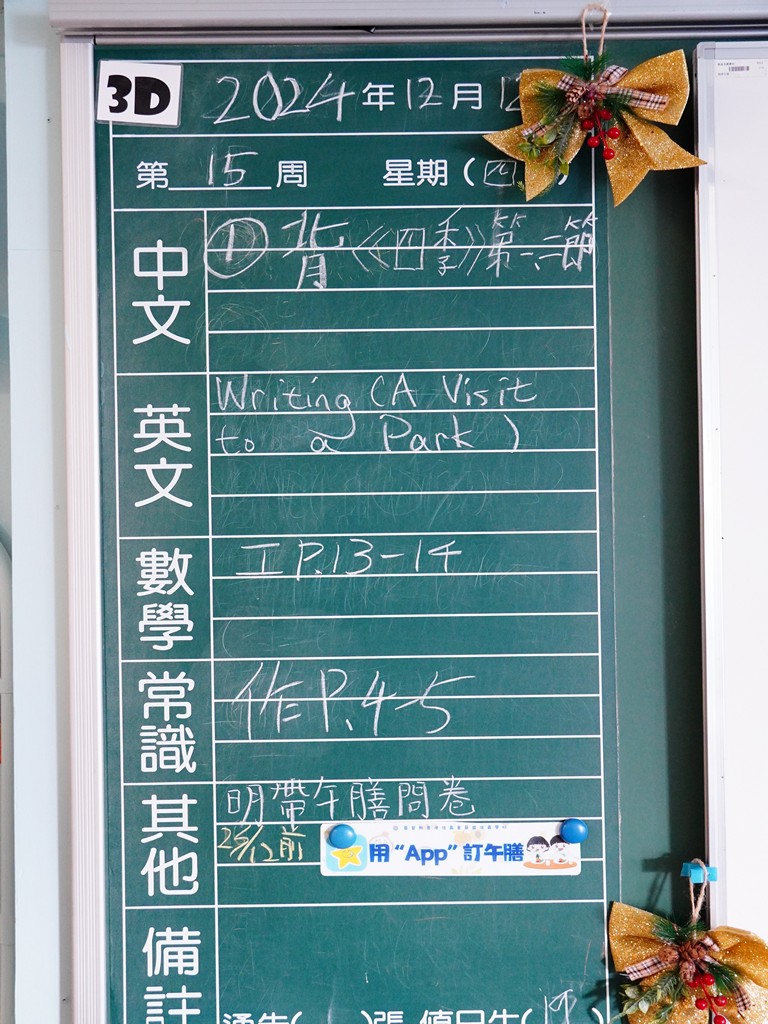 3D
2024年12月
第 15 周 星期(四)
中文
① 背《四季》第一、二節
英文
Writing (A Visit
to a Park)
數學
工 P.13-14
常識
作 P.4-5
其他
明帶午膳問卷
25/12前
用“App”訂午膳
備註
通告( )張 值日生(19)